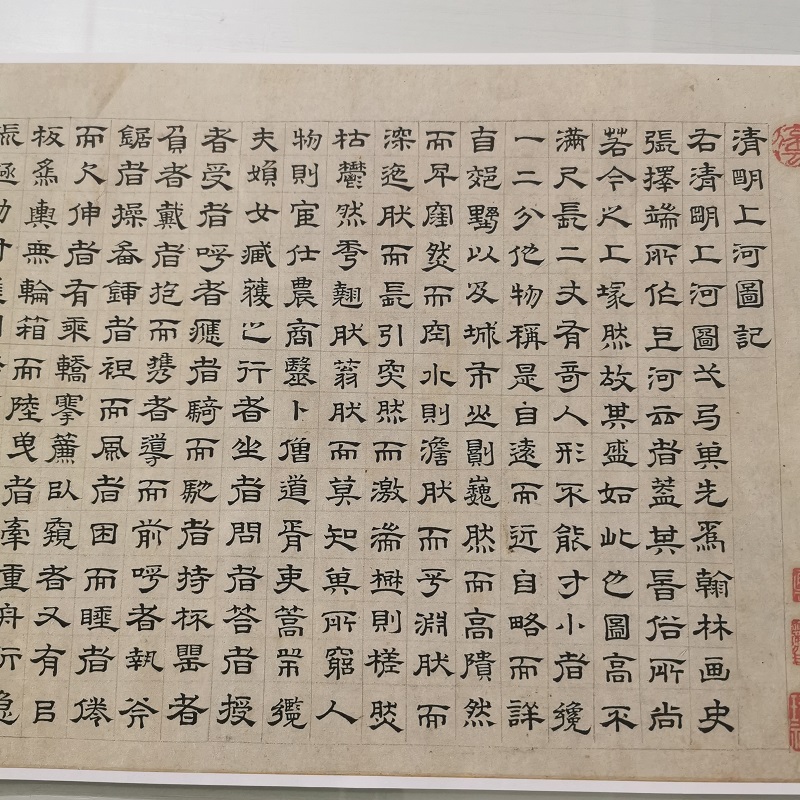 清明上河圖記
右清明上河圖弌弓其先爲翰林画史
張擇端所作上河云者蓋其時俗所尚
若今之上塚然故其盛如此也圖高不
滿尺長二丈有奇人形不能寸小者纔
一二分他物稱是自遠而近自略而詳
自郊野以及城市山則巍然而高隤然
而卑窪然而空水則澹然而平淵然而
深迤然而長引突然而激湍樹則槎然
枯鬱然秀翹然蓊然而莫知其所窮人
物則官仕農商醫卜僧道胥吏篙師纜
夫婦女臧獲之行者坐者問者答者授
者受者呼者應者騎而馳者持杯罌者
負者戴者抱而攜者導而前呼者執斧
鋸者操畚鍤者裎而風者困而睡者倦
而欠伸者有乘轎搴簾臥窺者又有以
板爲輿無輪箱而陸曳者牽重舟行急